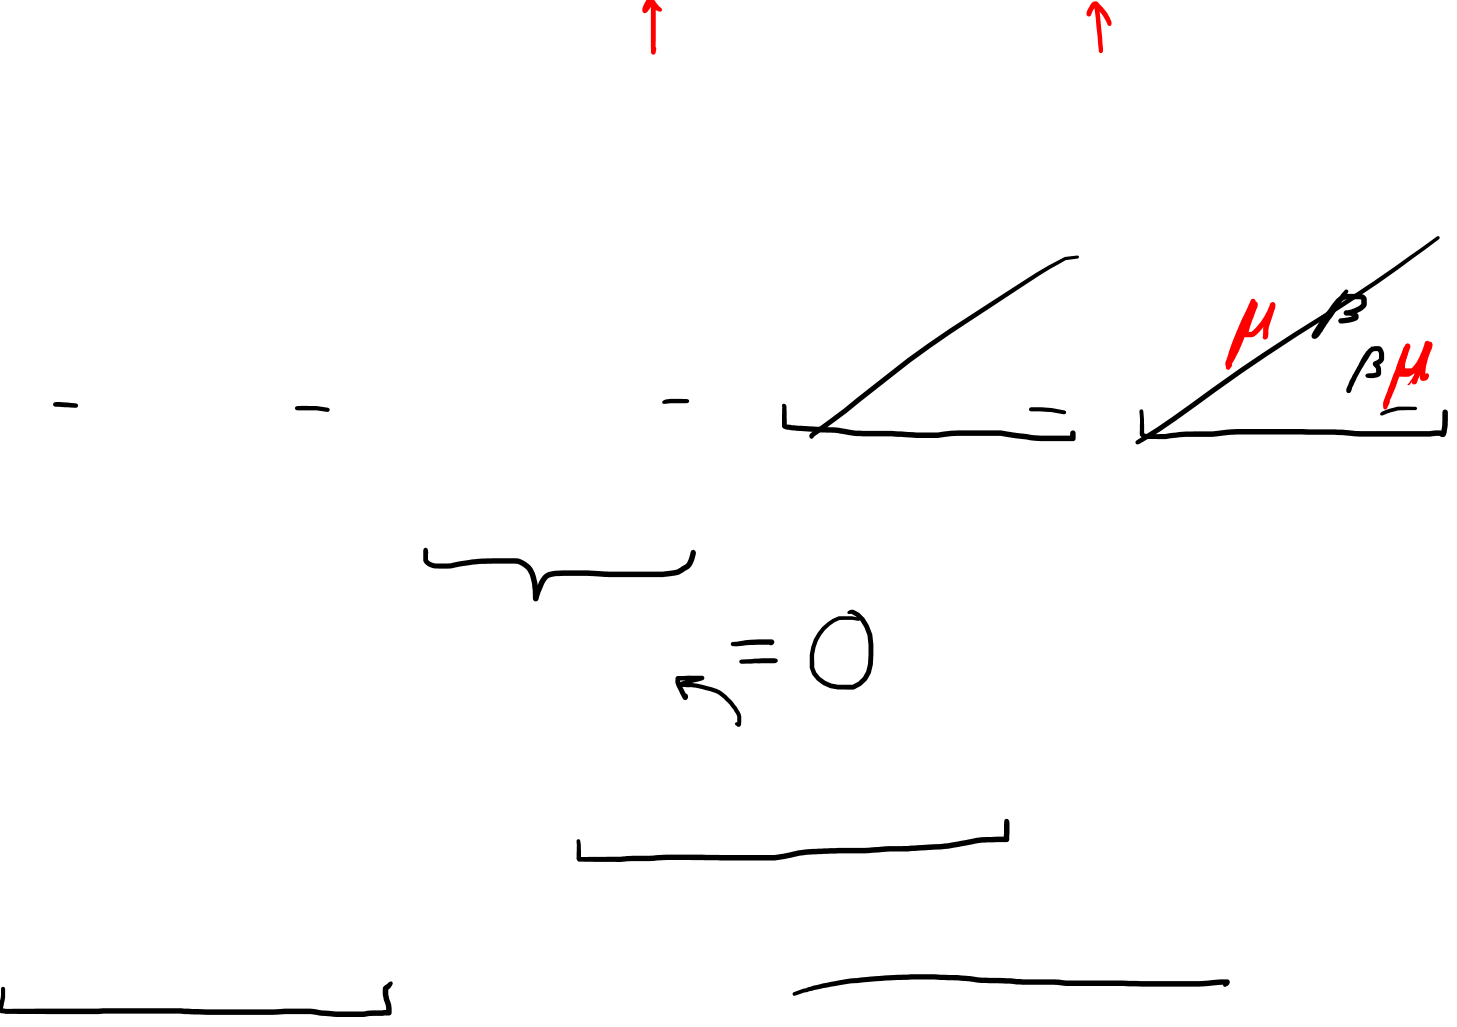 μ β
β μ
= 0